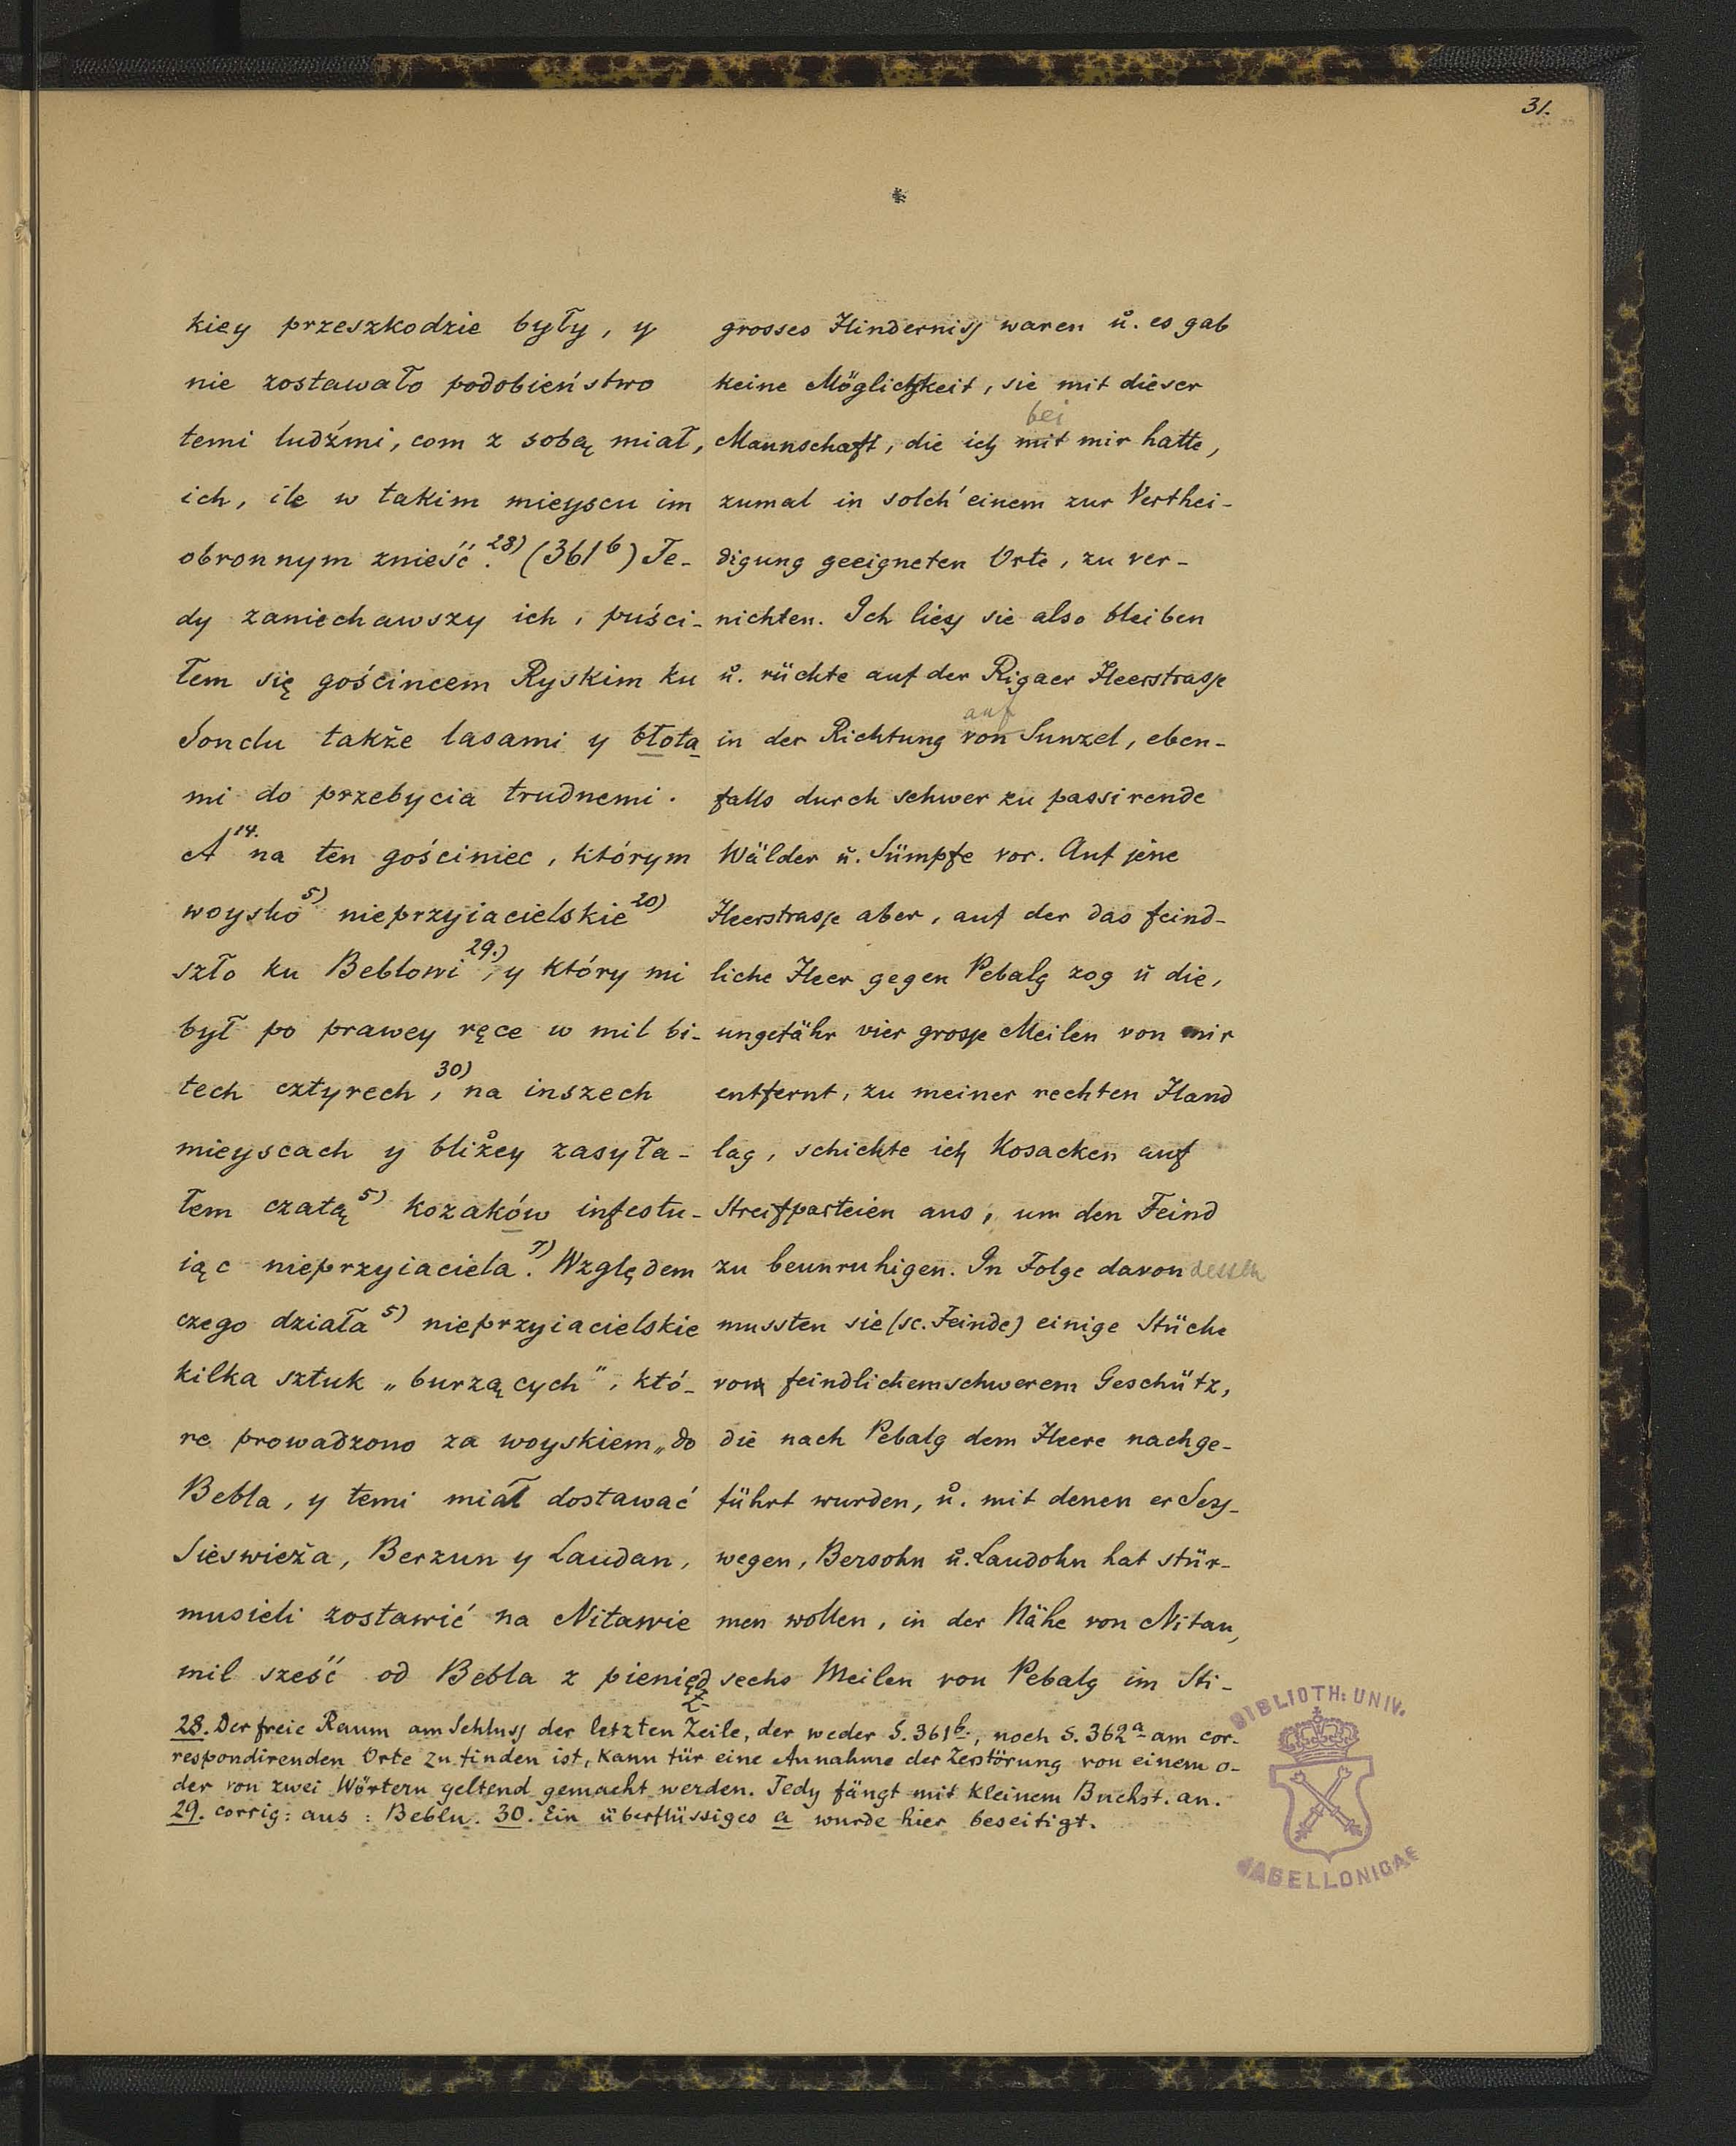 31.
kiey przeszkodzie były, y
nie zostawało podobieństwo
temi ludźmi, com z sobą miał,
ich, ile w takim mieyscu im
obronnym znieść.28) (361b) Te-
dy zaniechawszy ich, puści-
łem się gościncem Ryskim ku
Sonclu także lasami y błota
mi do przebycia trudnemi.
A14. na ten gościniec, którym
woysko5) nieprzyiacielskie20)
szło ku Beblowi29.), y który mi
był po prawey ręce w mil bi-
tech cztyrech,30) na inszech
mieyscach y bliżey zasyła-
łem czatą5) kozaków infestu-
iąc nieprzyiaciela.7) Względem
czego działa5) nieprzyiacielskie
kilka sztuk „burzących", któ-
re prowadzono za woyskiem „do
Bebla, y temi miał dostawać
Sieswieża, Berzun y Laudan,
musieli zostawić na Nitawie
mil sześć od Bebla z pienięd
z-
grosses Hinderniss waren u. es gab
keine Möglichkeit, sie mit dieser
bei
Mannschaft, die ich mit mir hatte,
zumal in solch' einem zur Verthei-
digung geeigneten Orte, zu ver-
nichten. Ich liess sie also bleiben
u. rückte auf der Rigaer Heerstrasse
auf
in der Richtung von Sunzel, eben-
falls durch schwer zu passirende
Wälder u. Sümpfe vor. Auf jene
Heerstrasse aber, auf der das feind-
liche Heer gegen Pebalg zog u die,
ungefähr vier grosse Meilen von mir
entfernt, zu meiner rechten Hand
lag, schickte ich Kosacken auf
Streifparteien aus, um den Feind
zu beunruhigen. In Folge davon dessen
mussten sie (sc. Feinde) einige Stücke
von feindlichem schwerem Geschütz,
die nach Pebalg dem Heere nachge-
führt wurden, u. mit denen er Sess-
wegen, Bersohn u. Laudohn hat stür-
men wollen, in der Nähe von Nitau,
sechs Meilen von Pebalg im Sti-
28. Der freie Raum am Schluss der letzten Zeile, der weder S. 361b., noch S. 362a am cor-
respondirenden Orte zu finden ist, kann für eine Annahme der Zerstörung von einem o-
der von zwei Wörtern geltend gemacht werden. Tedy fängt mit kleinem Buchst. an.
29. corrig: aus: Beblu. 30. Ein überflüssiges a wurde hier beseitigt.
BIBLIOTH: UNIV.
JAGELLONICAE